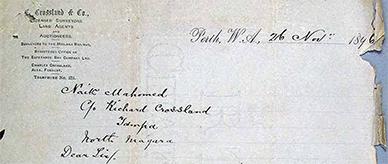 Crossland & Co.,
Licensed Surveyors
Land Agents
and
Auctioneers.
Surveyors to the Midland Railway.
Registered Office of
The Esperance Bay Company Ltd.
Charles Crossland,
Telephone No.
Perth, W.A., 26 Nov. 1896
Naik Mahomed
C/o Richard Crossland
North
Dear Sir,